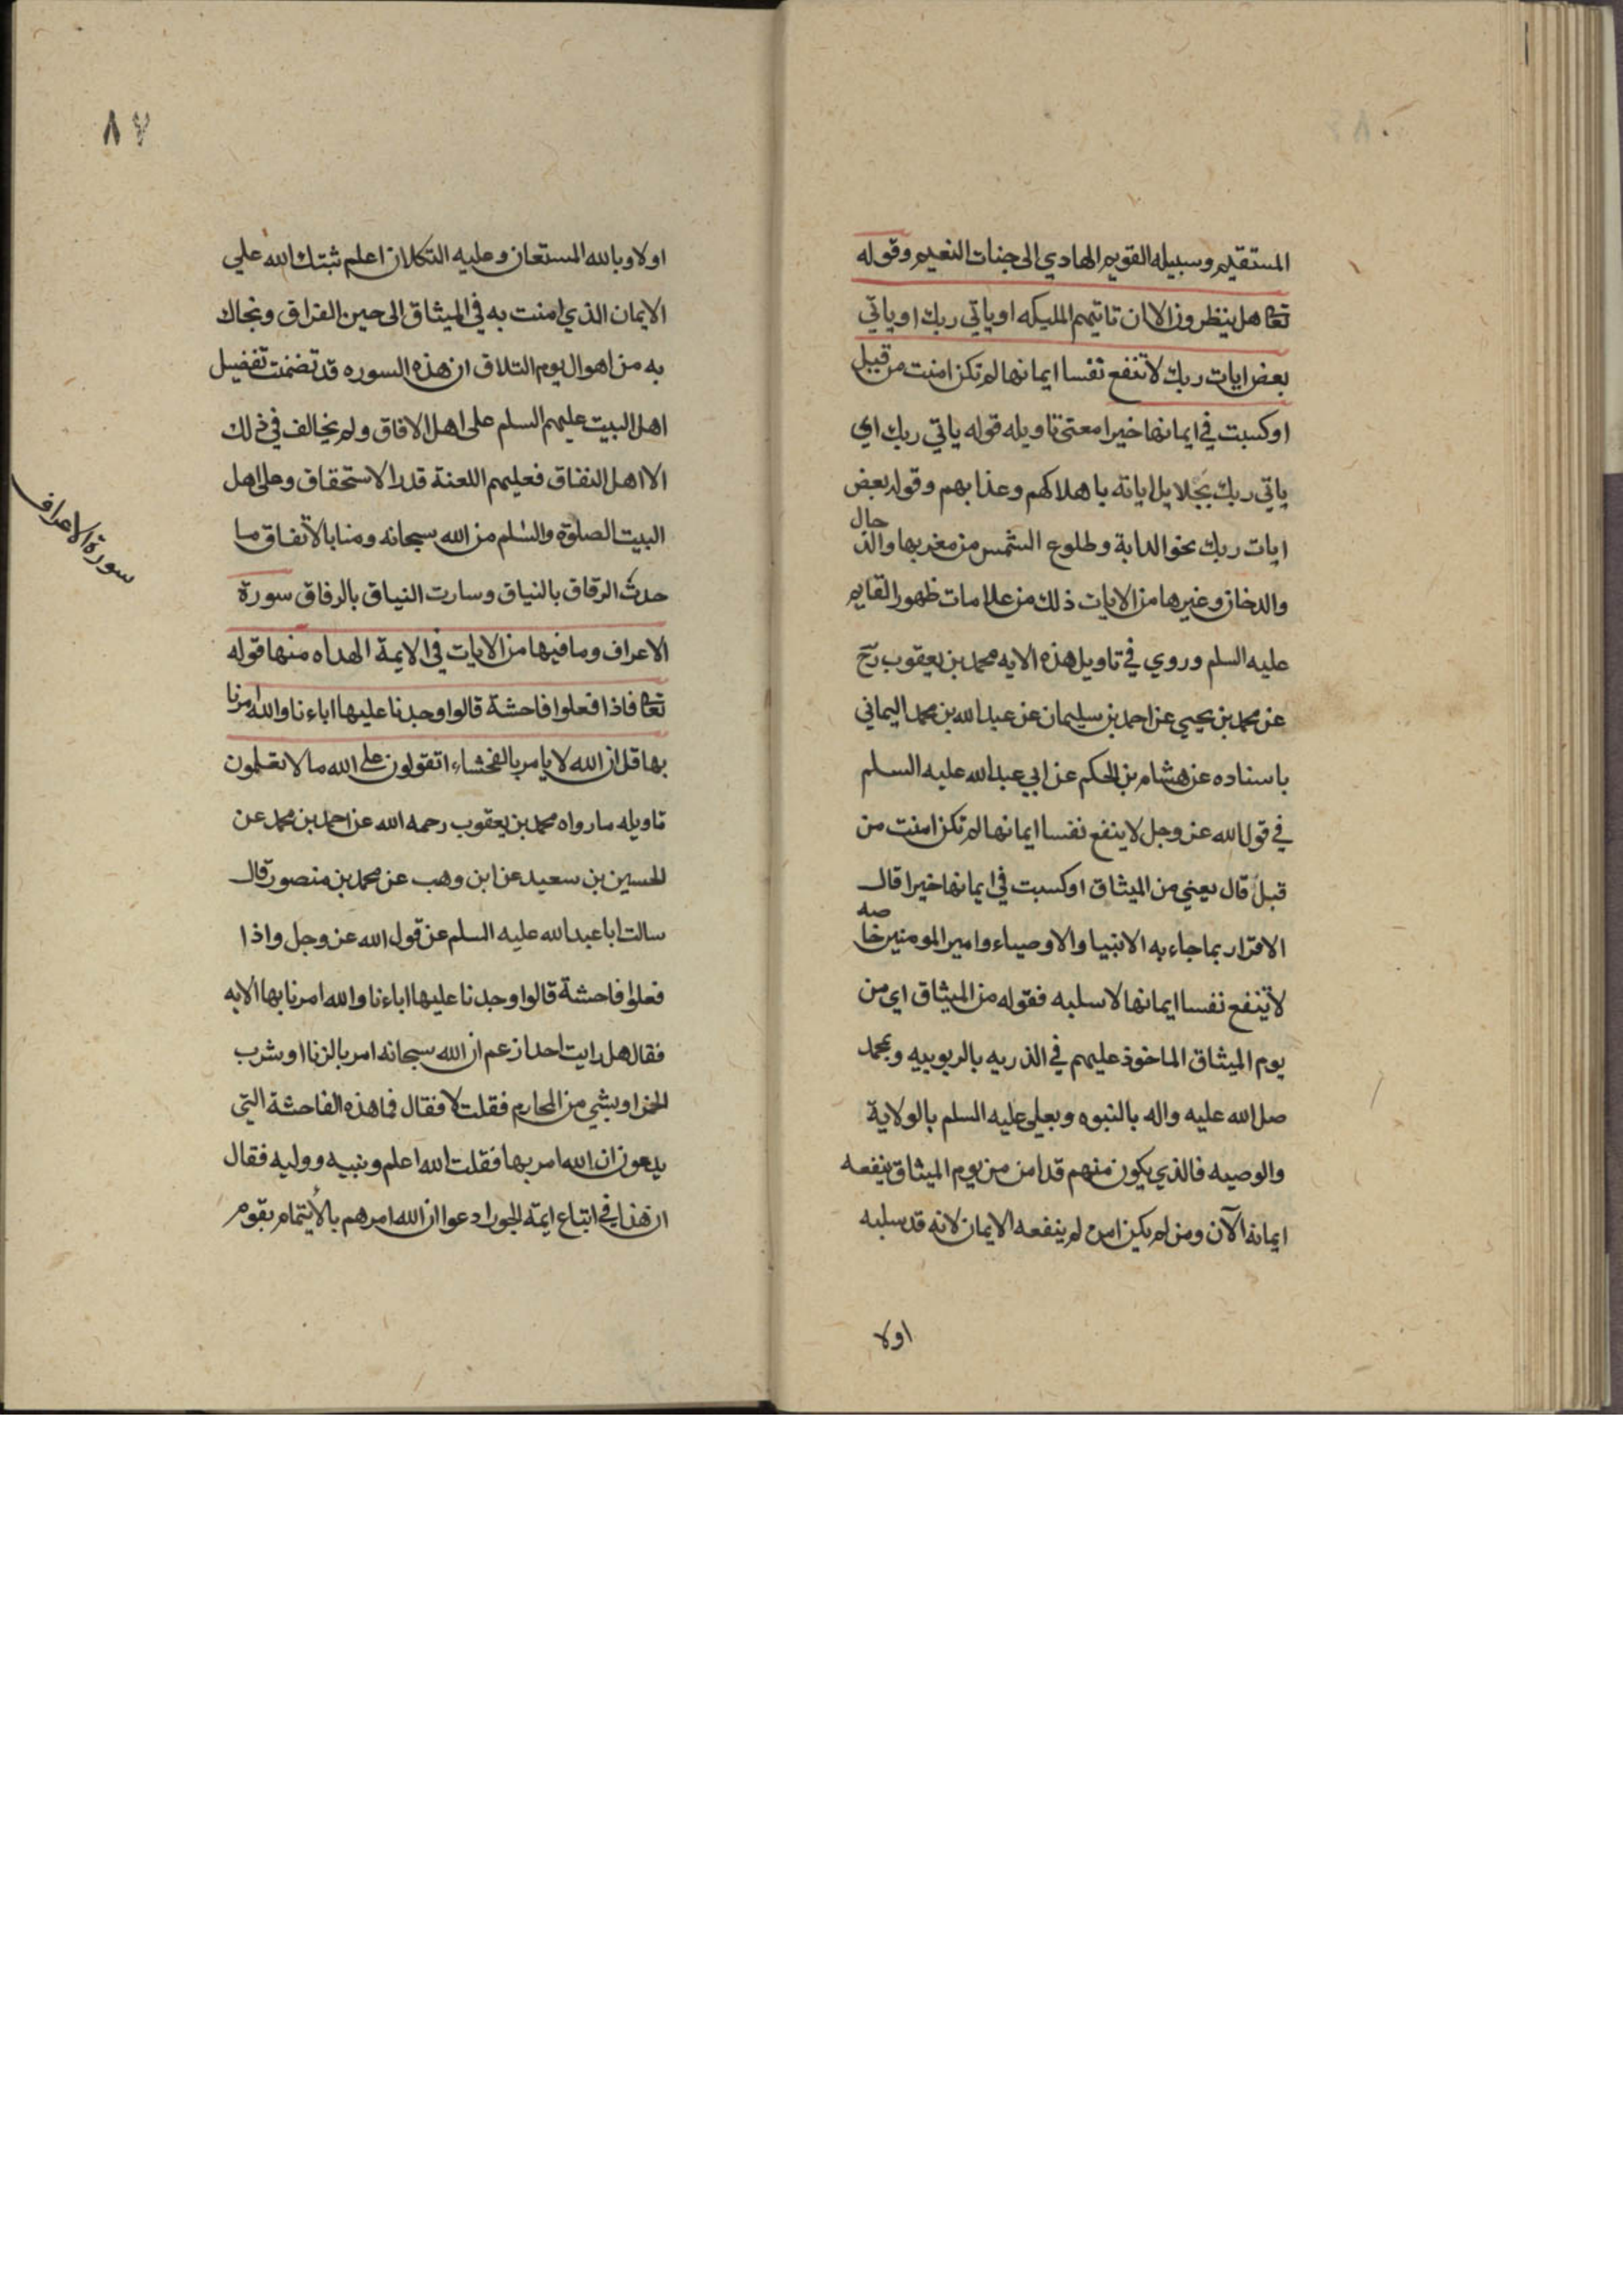 المستقيم وسبيله القويم الهادي الى جنات النعيم وقوله
تعا هل ينظرون الا ان تاتيهم المليكه او ياتي ربك او ياتي
بعض ايات ربك لا تنفع نفسا ايمانها لم تكن امنت من قبل
او كسبت في ايمانها خيرا معنى تاويله قوله ياتي ربك اي
ياتي ربك بجلايل اياته باهلاكهم وعذابهم وقوله بعض
ايات ربك نحو الدابة وطلوع الشمس من مغربها والدجال
والدخان وغيرها من الايات ذلك من علامات ظهور القايم
عليه السلم وروي في تاويل هذه الايه محمد بن يعقوب رح
عن محمد بن يحيي عن احمد بن سليمان عن عبد الله بن محمد اليماني
باسناده عن هشام بن الحكم عن ابي عبد الله عليه السلم
في قول الله عز وجل لا ينفع نفسا ايمانها لم تكن امنت من
قبل قال يعني من الميثاق او كسبت في ايمانها خيرا قال
الاقرار بما جاء به الانبيا والاوصياء وامير المومنين خاصه
لا ينفع نفسا ايمانها لا سلبه فقوله من الميثاق اي من
يوم الميثاق الماخوذ عليهم في الذريه بالربوبيه وبمحمد
صل الله عليه واله بالنبوه وبعلي عليه السلم بالولاية
والوصيه فالذي يكون منهم قد امن من يوم الميثاق ينفعه
ايمانه الآن ومن لم يكن امن لم ينفعه الايمان لانه قد سلبه
اولا
٨٧
اولا وبالله المستعان وعليه التكلان اعلم ثبتك الله علي
الايمان الذي امنت به في الميثاق الى حين الفراق ونجاك
به من اهوال يوم التلاق ان هذه السوره قد تضمنت تفضيل
اهل البيت عليهم السلم على اهل الافاق ولم يخالف في ذلك
الا اهل النفاق فعليهم اللعنة قدر الاستحقاق وعلى اهل
البيت الصلوة والسلم من الله سبحانه ومنا بالاتفاق ما
حدث الرفاق بالنياق وسارت النياق بالرفاق سورة
الاعراف وما فيها من الايات في الايمة الهداه منها قوله
تعا فاذا فعلوا فاحشة قالوا وجدنا عليها اباءنا والله امرنا
بها قل ان الله لا يامر بالفحشاء اتقولون على الله ما لا تعلمون
تاويله ما رواه محمد بن يعقوب رحمه الله عن احمد بن محمد عن
الحسين بن سعيد عن ابن وهب عن محمد بن منصور قال
سالت ابا عبد الله عليه السلم عن قول الله عز وجل واذا
فعلوا فاحشة قالوا وجدنا عليها اباءنا والله امرنا بها الايه
فقال هل رايت احدا زعم ان الله سبحانه امر بالزنا او شرب
الخمر او بشي من المحارم فقلت لا فقال فما هذه الفاحشة التي
يدعون ان الله امر بها فقلت الله اعلم ونبيه ووليه فقال
ان هذا في اتباع ايمة الجور ادعوا ان الله امرهم بالايتمام بقوم
سورة الاعراف